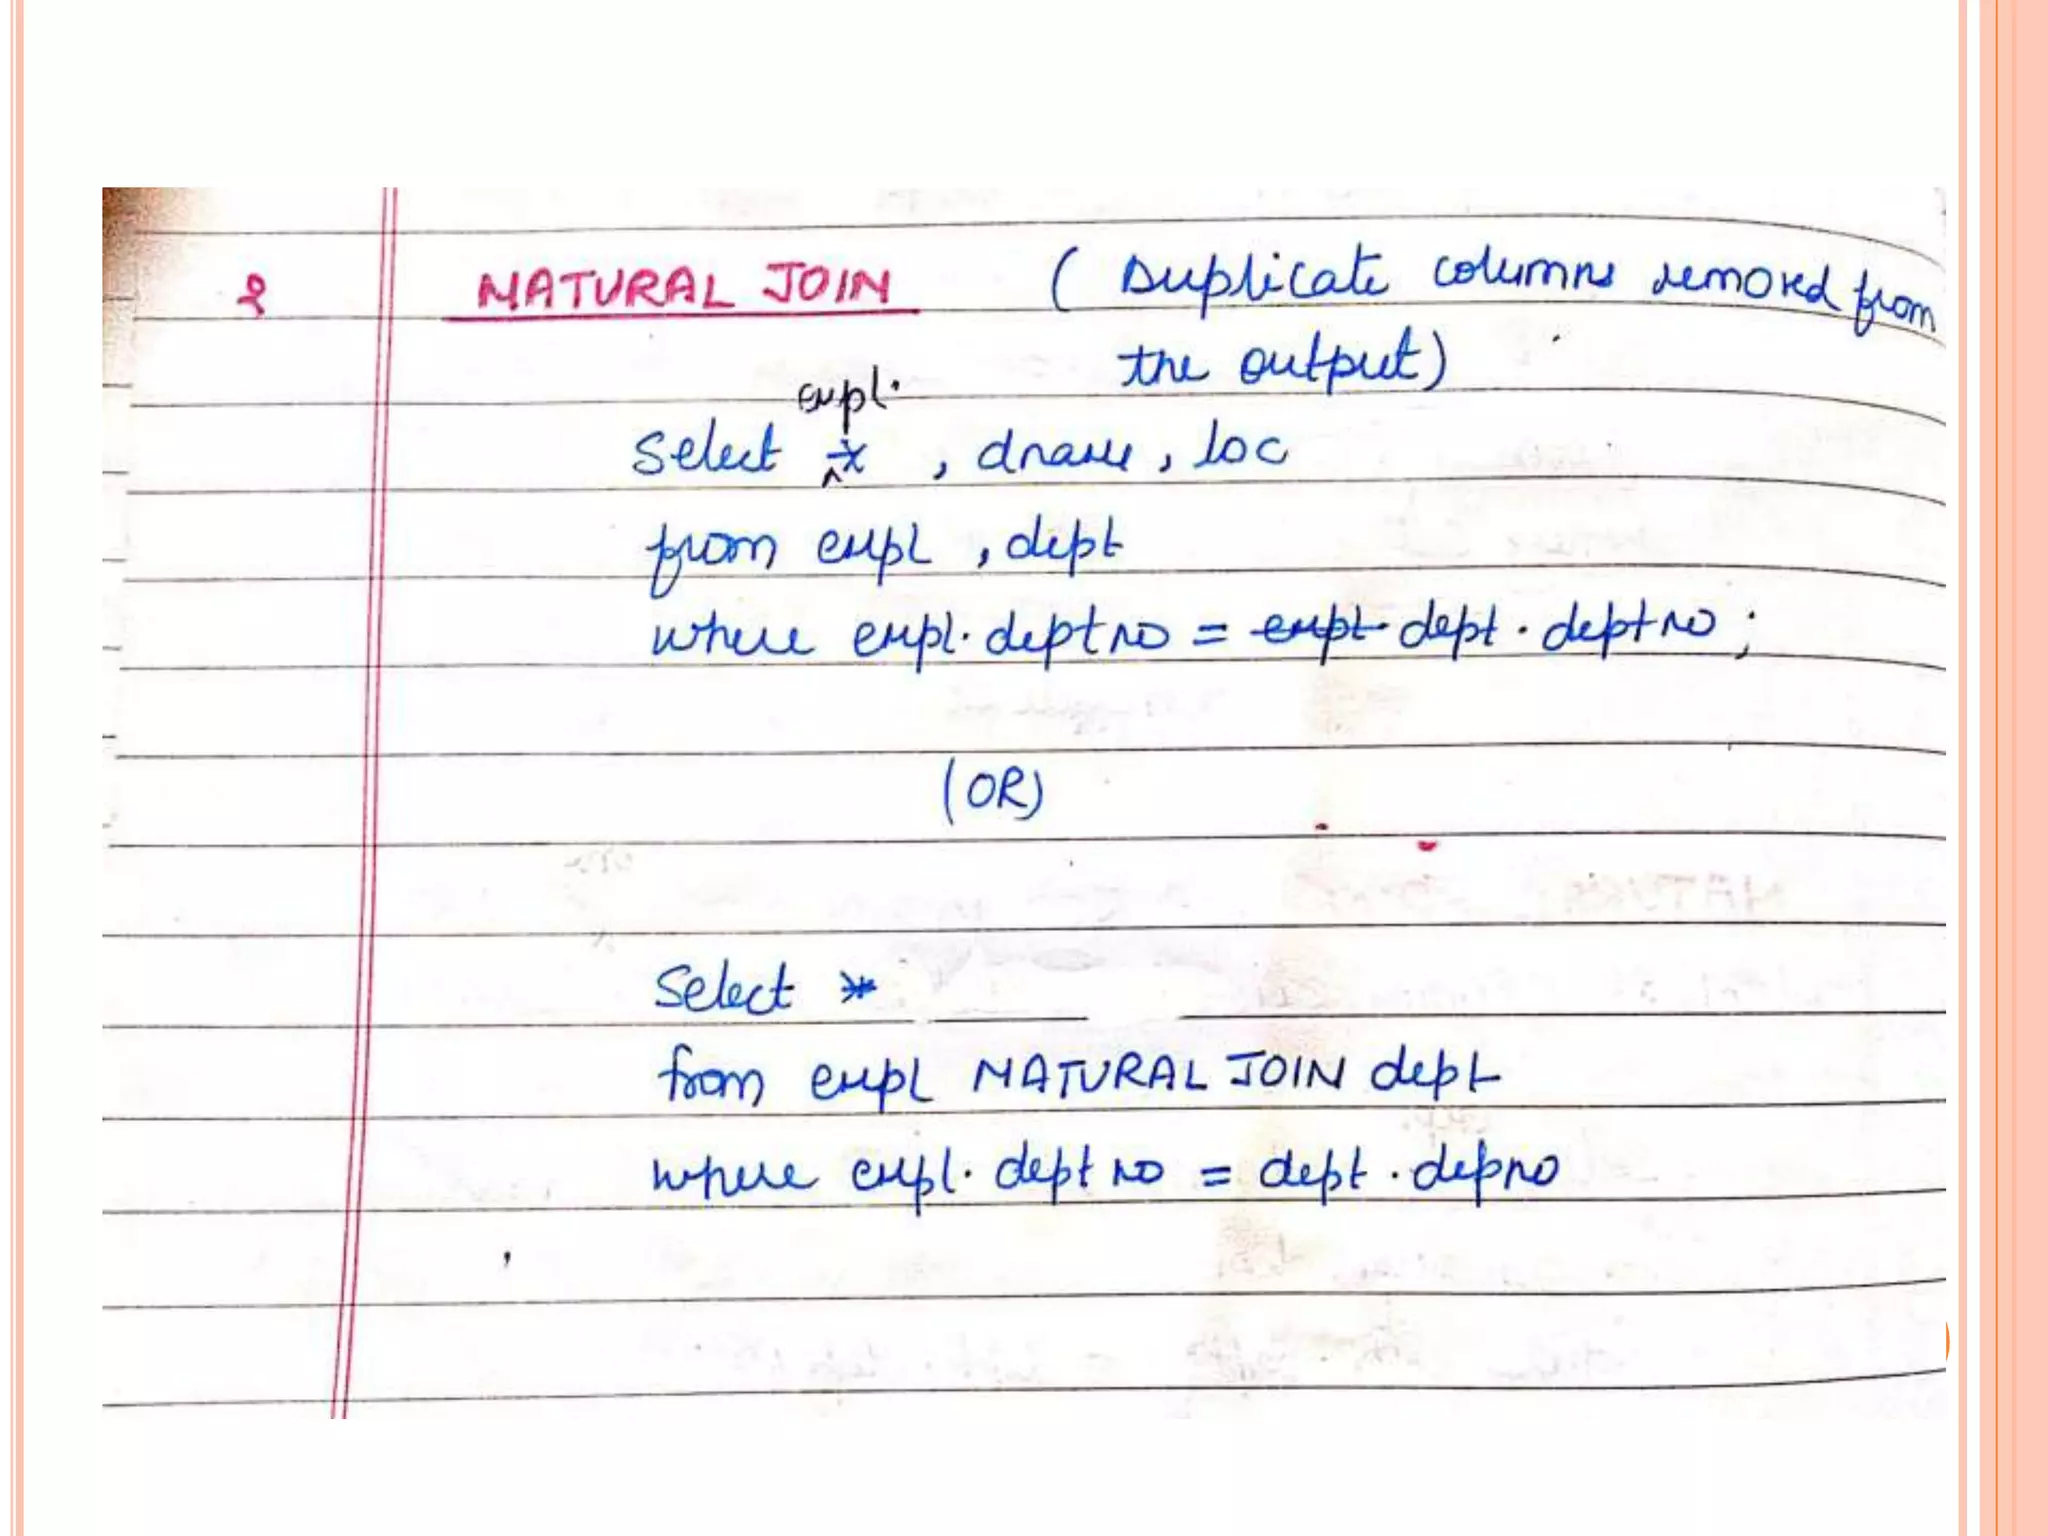 2 NATURAL JOIN ( Duplicate columns removed from
the output)
empl.
Select * , dname, loc
from empl , dept
where empl. deptno = empl. dept . deptno ;
(OR)
Select *
from empl NATURAL JOIN dept
where empl. deptno = dept . depno